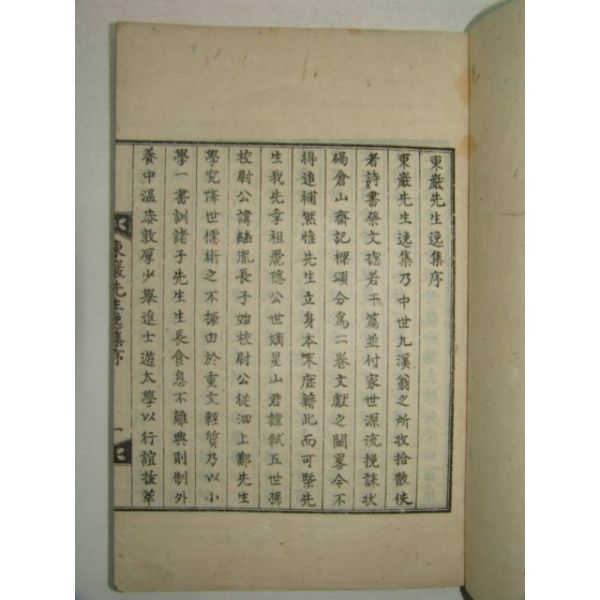 東巖先生逸集序
東巖先生逸集乃中世九溪翁之所收拾散佚
者詩書祭文摠若干篇並付家世源流挽誄狀
碣倉山齋記樑頌分爲二卷文獻之闕畧今不
得追補然惟先生立身本末底籍此而可槩先
生我先幸祖麂隱公世嫡星山君諱軾五世孫
校尉公諱緖胤長子始校尉公從泗上鄭先生
學究降世儒術之不振由於重文輕質乃以小
學一書訓諸子先生生長食息不離典則制外
養中溫恭敦厚少舉進士遊太學以行誼拔萃
東巖先生逸集序
一